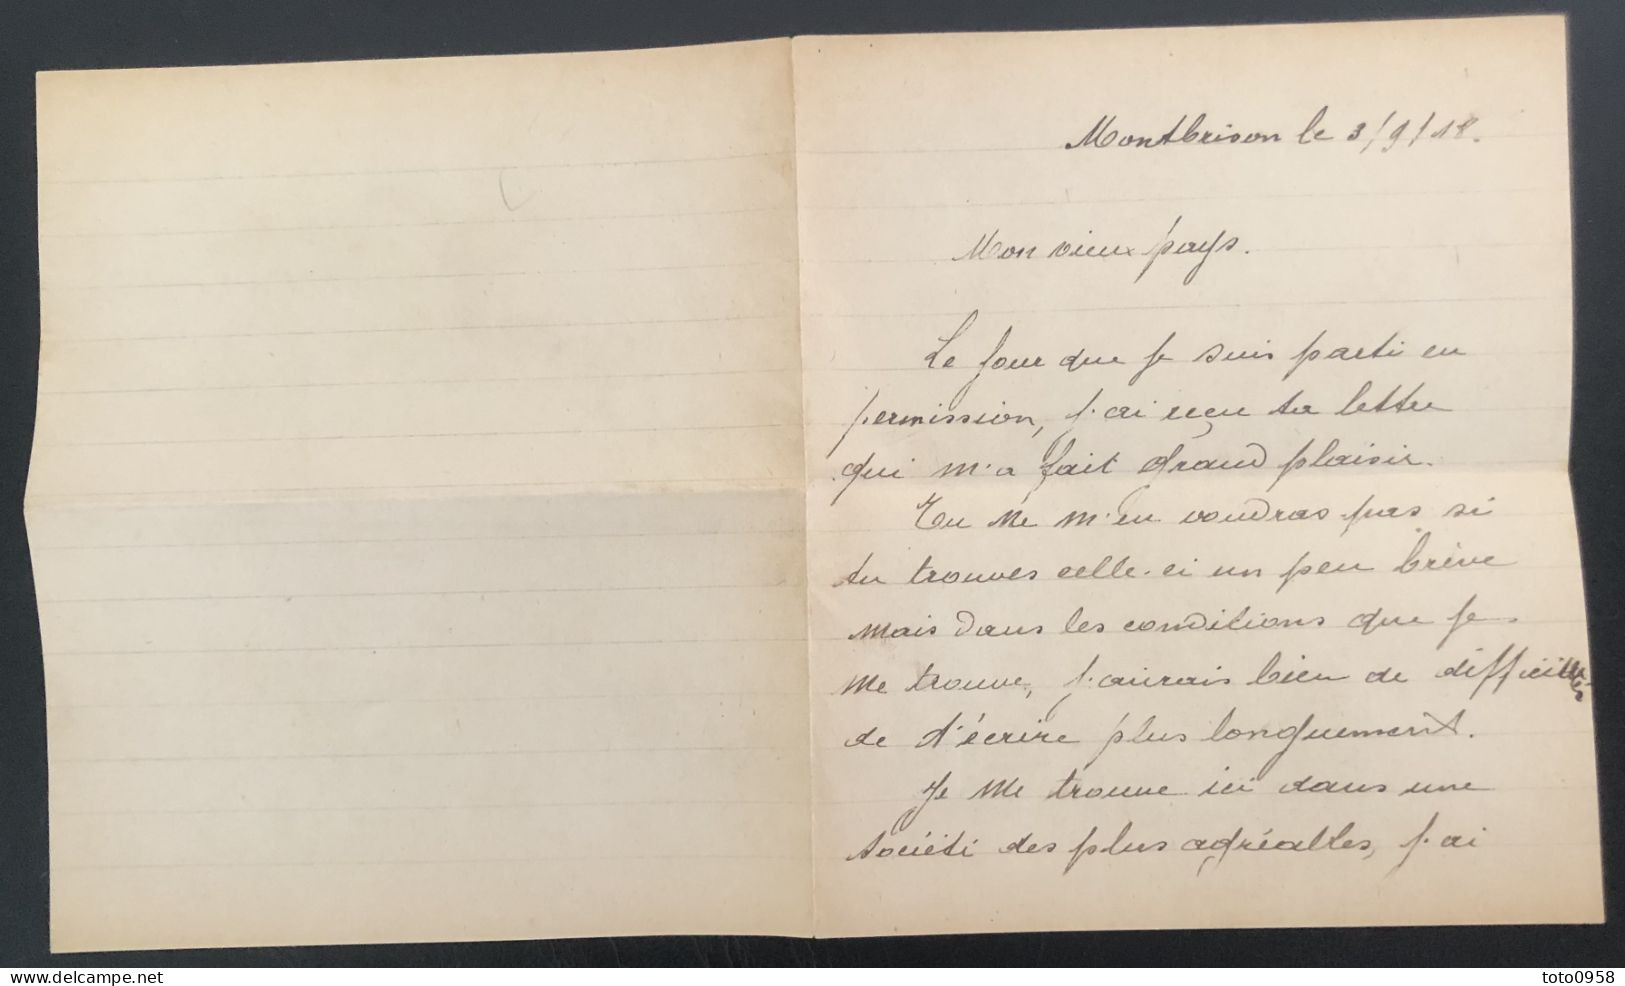 Montbrison le 3/9/18.
Mon vieux pays.
Le jour que je suis parti en
permission, j'ai reçu ta lettre
qui m'a fait grand plaisir.
Tu ne m'en voudras pas si
tu trouves celle-ci un peu brève
mais dans les conditions que je
me trouve, j'aurais bien de difficiltés
de t'écrire plus longuement.
Je me trouve ici dans une
société des plus agréables, j'ai
www.delcampe.net
toto0958